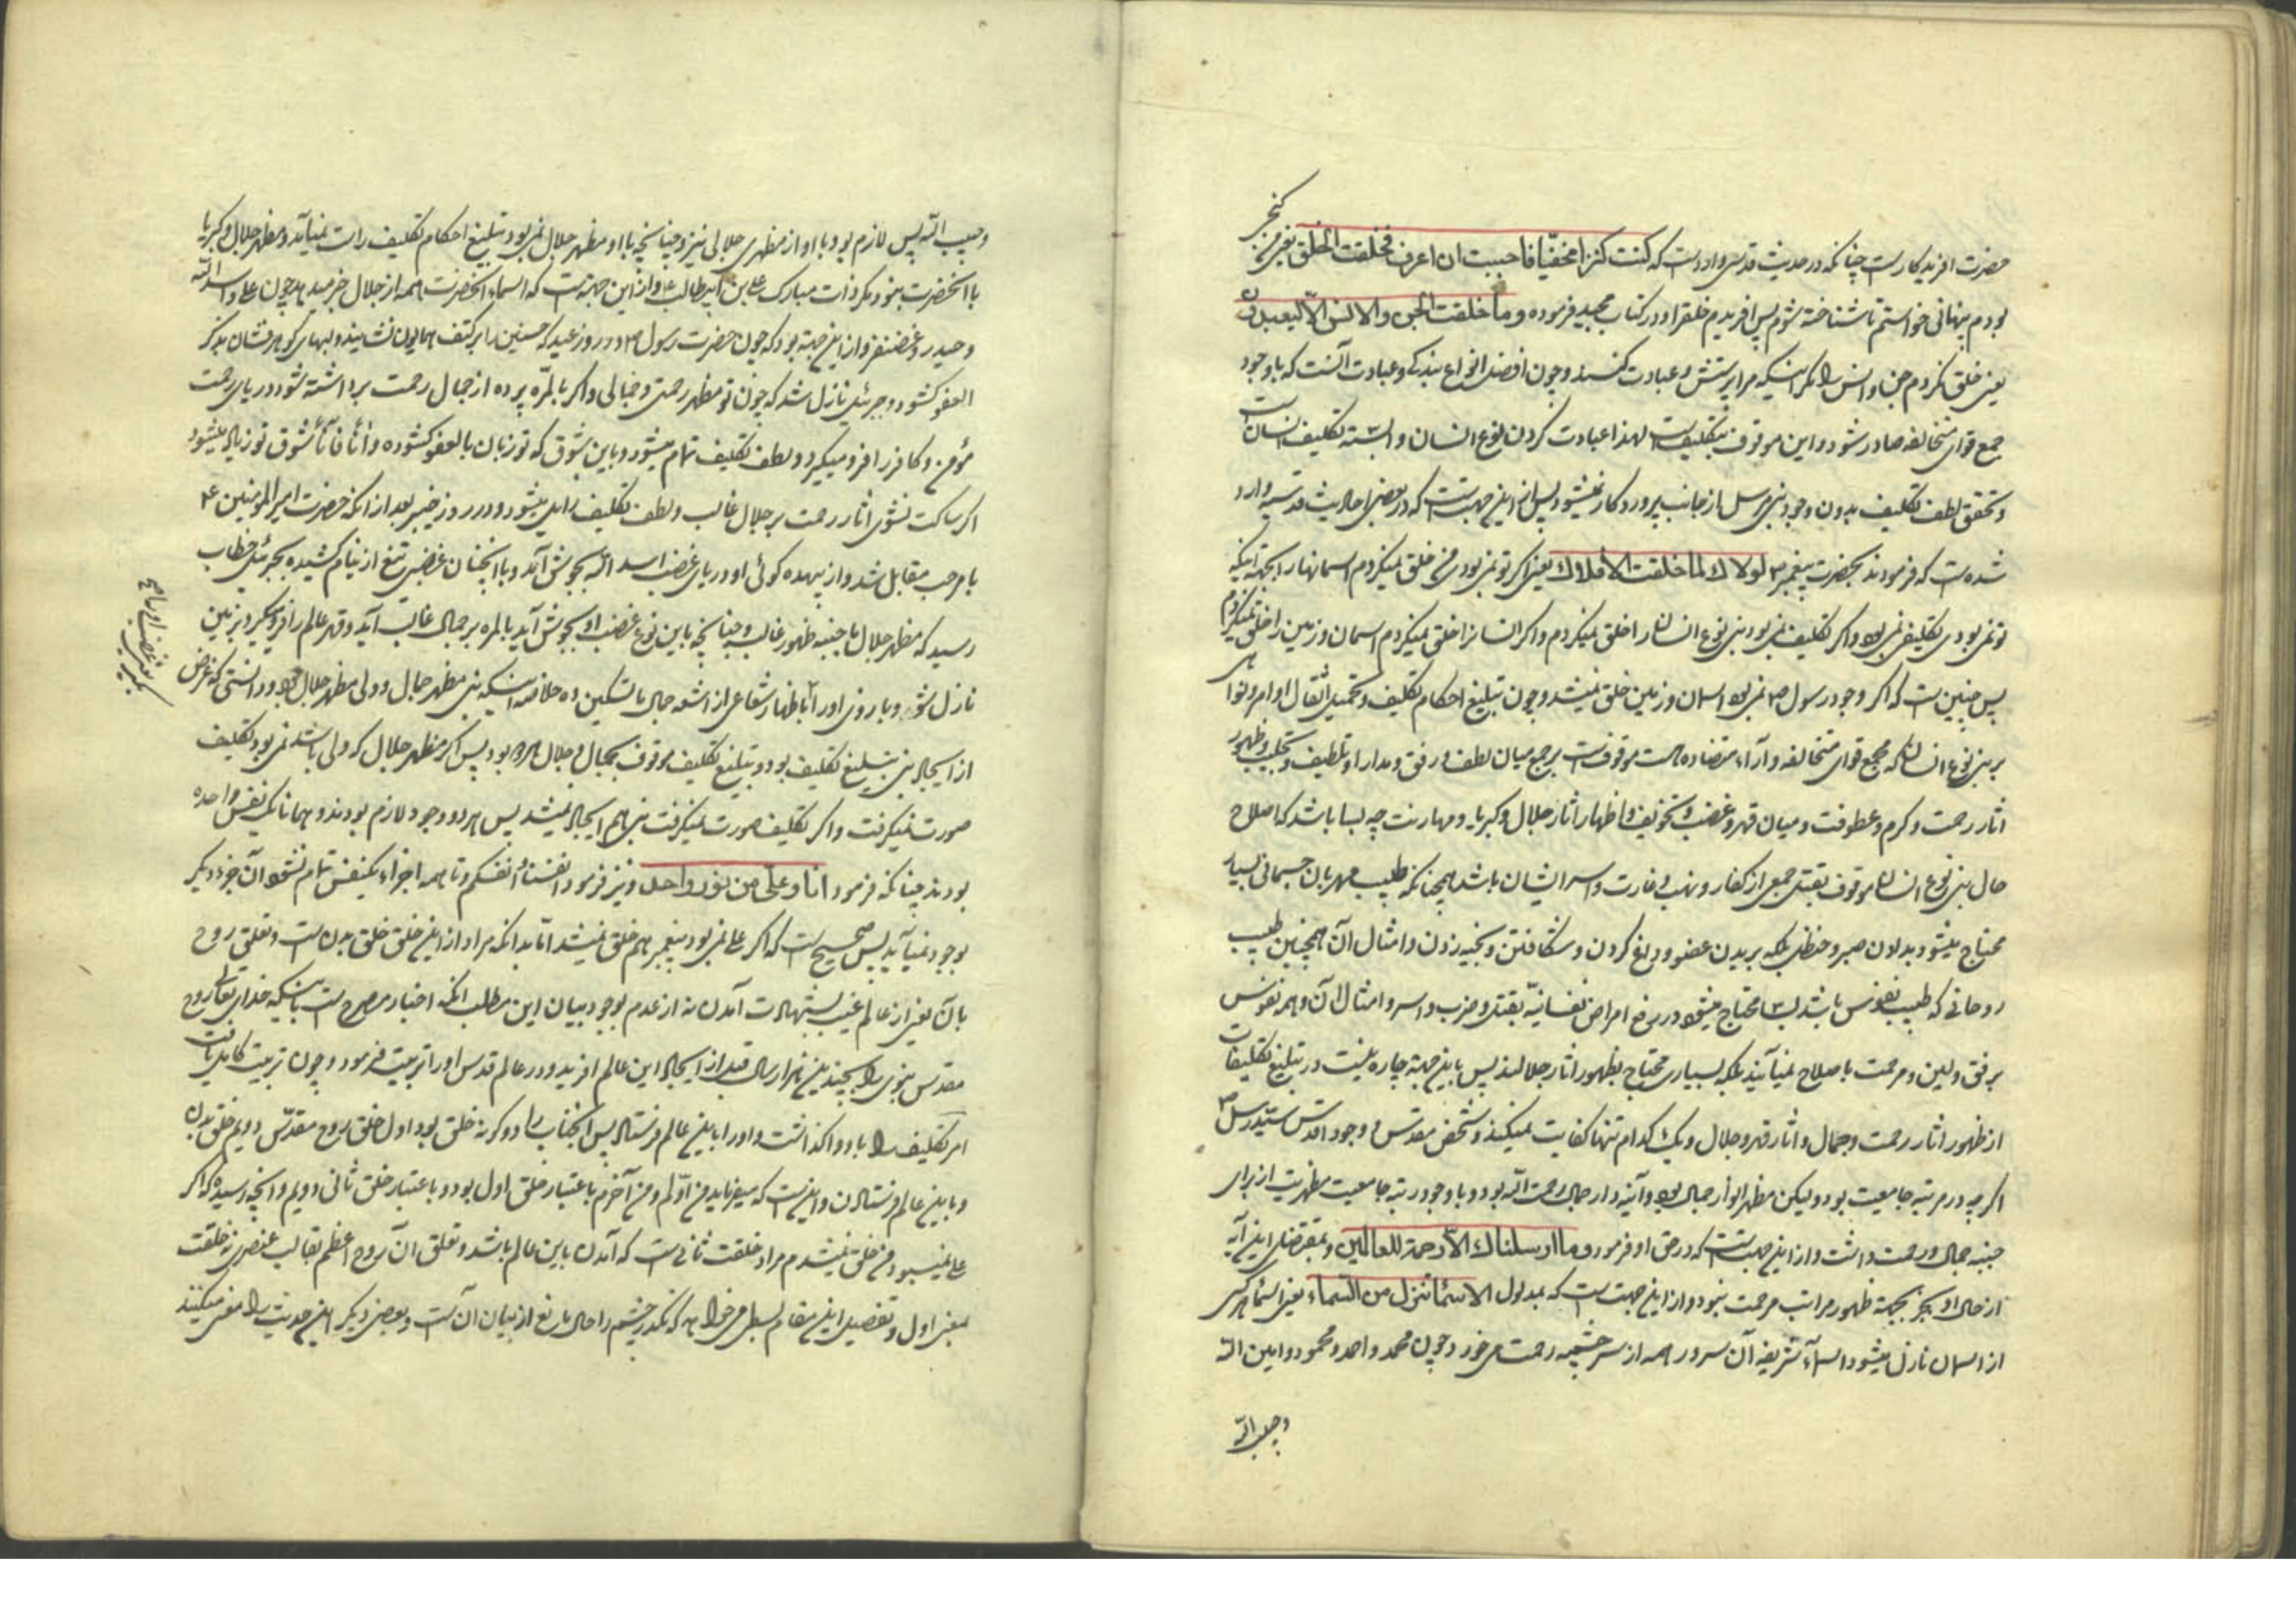 حضرت آفریدکارست چنانکه در حدیث قدسی وارد است که کنت کنزا مخفیّا فاحببت ان اعرف فخلقت الخلق یعنی من کنج
بودم پنهانی خواستم تا شناخته شوم پس آفریدم خلق را و در کتاب مجید فرموده و ما خلقت الجن والانس الّا لیعبدون
یعنی خلق نکردم جن و انس را مکر اینکه مرا پرستش و عبادت کنند و چون افضل انواع بندکی و عبادت آنست که با وجود
جمع قوای متخالفه صادر شود و این موقوف بتکلیف است لهذا عبادت کردن نوع انسان وابسته تکلیف انسان است
و تحقق لطف تکلیف بدون وجود نبی مرسل از جانب پروردکار نمیشود پس از این جهت است که در بعضی احادیث قدسیه وارد
شده است که فرمودند بحضرت پیغمبر ص لولاك لما خلقت الافلاك یعنی اکر تو نمی بودی من خلق نمیکردم آسمانها را بجهت اینکه
تو نمی بودی تکلیف نمی بود و اکر تکلیف نمی بود بنی نوع انسان را خلق نمیکردم و اکر انسان را خلق نمیکردم آسمان و زمین را خلق نمیکردم
پس چنین است که اکر وجود رسول ص نمی بود آسمان و زمین خلق نمیشد و چون تبلیغ احکام تکلیف و تحمیل اثقال اوامر و نواهی
بر بنی نوع انسان که مجمع قوای متخالفه و آراء متضاده است موقوفست بر جمع میان لطف و رفق و مدارا و تلطیف و تجلی و ظهور
آثار رحمت و کرم و عطوفت و میان قهر و غضب و تخویف و اظهار آثار جلال و کبریا و مهابت چه بسا باشد که اصلاح
حال بنی نوع انسان موقوف بقتل جمعی از کفار و نهب و غارت و اسر ایشان باشد همچنانکه طبیب مهربان جسمانی بسیار
محتاج میشود بدادن صبر و حنظل بلکه بریدن عضو و داغ کردن و شکافتن و بخیه زدن و امثال آن همچنین طبیب
روحانی که طبیب نفوس باشد بسا محتاج میشود در رفع امراض نفسانیّه بقتل و ضرب و اسر و امثال آن و همه نفوس
برفق و لین و مرحمت باصلاح نمی آیند بلکه بسیاری محتاج بظهور آثار جلالند پس باین جهة چاره نیست در تبلیغ تکلیفات
از ظهور آثار رحمت و جمال و آثار قهر و جلال و یك کدام تنها کفایت نمیکند و شخص مقدس و وجود اقدس سیّد رسل ص
اکر چه در مرتبه جامعیت بود و لیکن مظهر انوار جمال بود و آئینه دار جمال رحمت الله بود و با وجود رتبه جامعیت مظهریت از برای
جنبه جمال و رحمت داشت و از این جهت است که در حق او فرمود وما ارسلناك الّا رحمة للعالمین و بمقتضای این آیه
از حال او بجز بجهة ظهور مراتب مرحمت نبود و از این جهت است که بمدلول الاسماء تنزل من السّماء یعنی اسماء هر کس
از آسمان نازل میشود اسماء شریفه آن سرور همه از سر چشمه رحمت می خورد چون محمد و احمد و محمود و امین الله
و حبیب الله
و حبیب الله پس لازم بود با او از مظهری جلالی نیز و چنانچه با او مظهر جلال نمی بود تبلیغ احکام تکلیف راست نمیآمد و مظهر جلال و کبریا
با آنحضرت نبود مکر ذات مبارك علی بن ابیطالب ع و از این جهة است که اسماء آنحضرت همه از جلال خبر میدهد چون علی و اسد الله
و حیدر و غضنفر و از این جهة بود که چون حضرت رسول ص در روز عید که حسنین را بر کتف همایون نشانید و لبهای کوهرفشان بذکر
العفو کشود و جبرئیل نازل شد که چون تو مظهر رحمتی و جمالی و اکر بالمرّه پرده از جمال رحمت برداشته شود دریای رحمت
مؤمن و کافر را فرو میکیرد و لطف تکلیف تمام میشود و باین شوق که تو زبان بالعفو کشوده و آناً فآناً شوق تو زیاد میشود
اکر ساکت نشوی آثار رحمت بر جلال غالب و لطف تکلیف زایل میشود و در روز خیبر بعد از آنکه حضرت امیرالمؤمنین ع
با مرحب مقابل شد و از بیهده کوئی او دریای غضب اسد الله بجوش آمد و با آنچنان غضبی تیغ از نیام کشیده بجبرئیل خطاب
رسید که مظهر جلال با جنبه ظهور غالب و چنانچه باین نوع غضب او بجوش آید بالمره بر جمال غالب آید و قهر عالم را فرو کیرد بزمین
نازل شو و بازوی او را باظهار شعاعی از اشعه جمال تسکین ده خلاصه اینکه نبی مظهر جمال و ولی مظهر جلال بود و دانستی که غرض
از ایجاد نبی تبلیغ تکلیف بود و تبلیغ تکلیف موقوف بجمال و جلال هر دو بود پس اکر مظهر جلال که ولی باشد نمی بود تکلیف
صورت نمیکرفت و اکر تکلیف صورت نمیکرفت نبی هم ایجاد نمیشد پس هر دو وجود لازم بودند و همانا یك نفس واحده
بودند چنانکه فرمود انا و علی من نور واحد و نیز فرمود انفسنا و انفسکم و تا همه اجزاء یکنفس تمام نشود آن جزء دیکر
بوجود نمیآید پس صحیح است که اکر علی نمی بود پیغمبر هم خلق نمیشد امّا بدانکه مراد از این خلق خلق بدن است و تعلق روح
بآن یعنی از عالم غیب بشهادت آمدن نه از عدم بوجود بیان این مطلب آنکه اخبار مصرح است باینکه خدای تعالی روح
مقدس نبوی را بچندین هزار سال قبل از ایجاد این عالم آفرید و در عالم قدس او را تربیت فرمود و چون تربیت کامل یافت
امر تکلیف را باو واکذاشت و او را باین عالم فرستاد پس آنجناب را دو کونه خلق بود اول خلق روح مقدّس دویم خلق بدن
و باین عالم فرستادن و اینست که میفرماید من اوّلم و من آخرم باعتبار خلق اول بود و باعتبار خلق ثانی دویم و آنچه رسیده که اکر
علی نمیبود من خلق نمیشدم مراد خلقت ثانی است که آمدن باین عالم باشد و تعلق آن روح اعظم بقالب عنصری نه خلقت
بمعنی اول و تفصیل این مقام بسطی می خواهد که تکدر چشم را حال مانع از بیان آن است و بعضی دیکر این حدیث را معنی میکنند